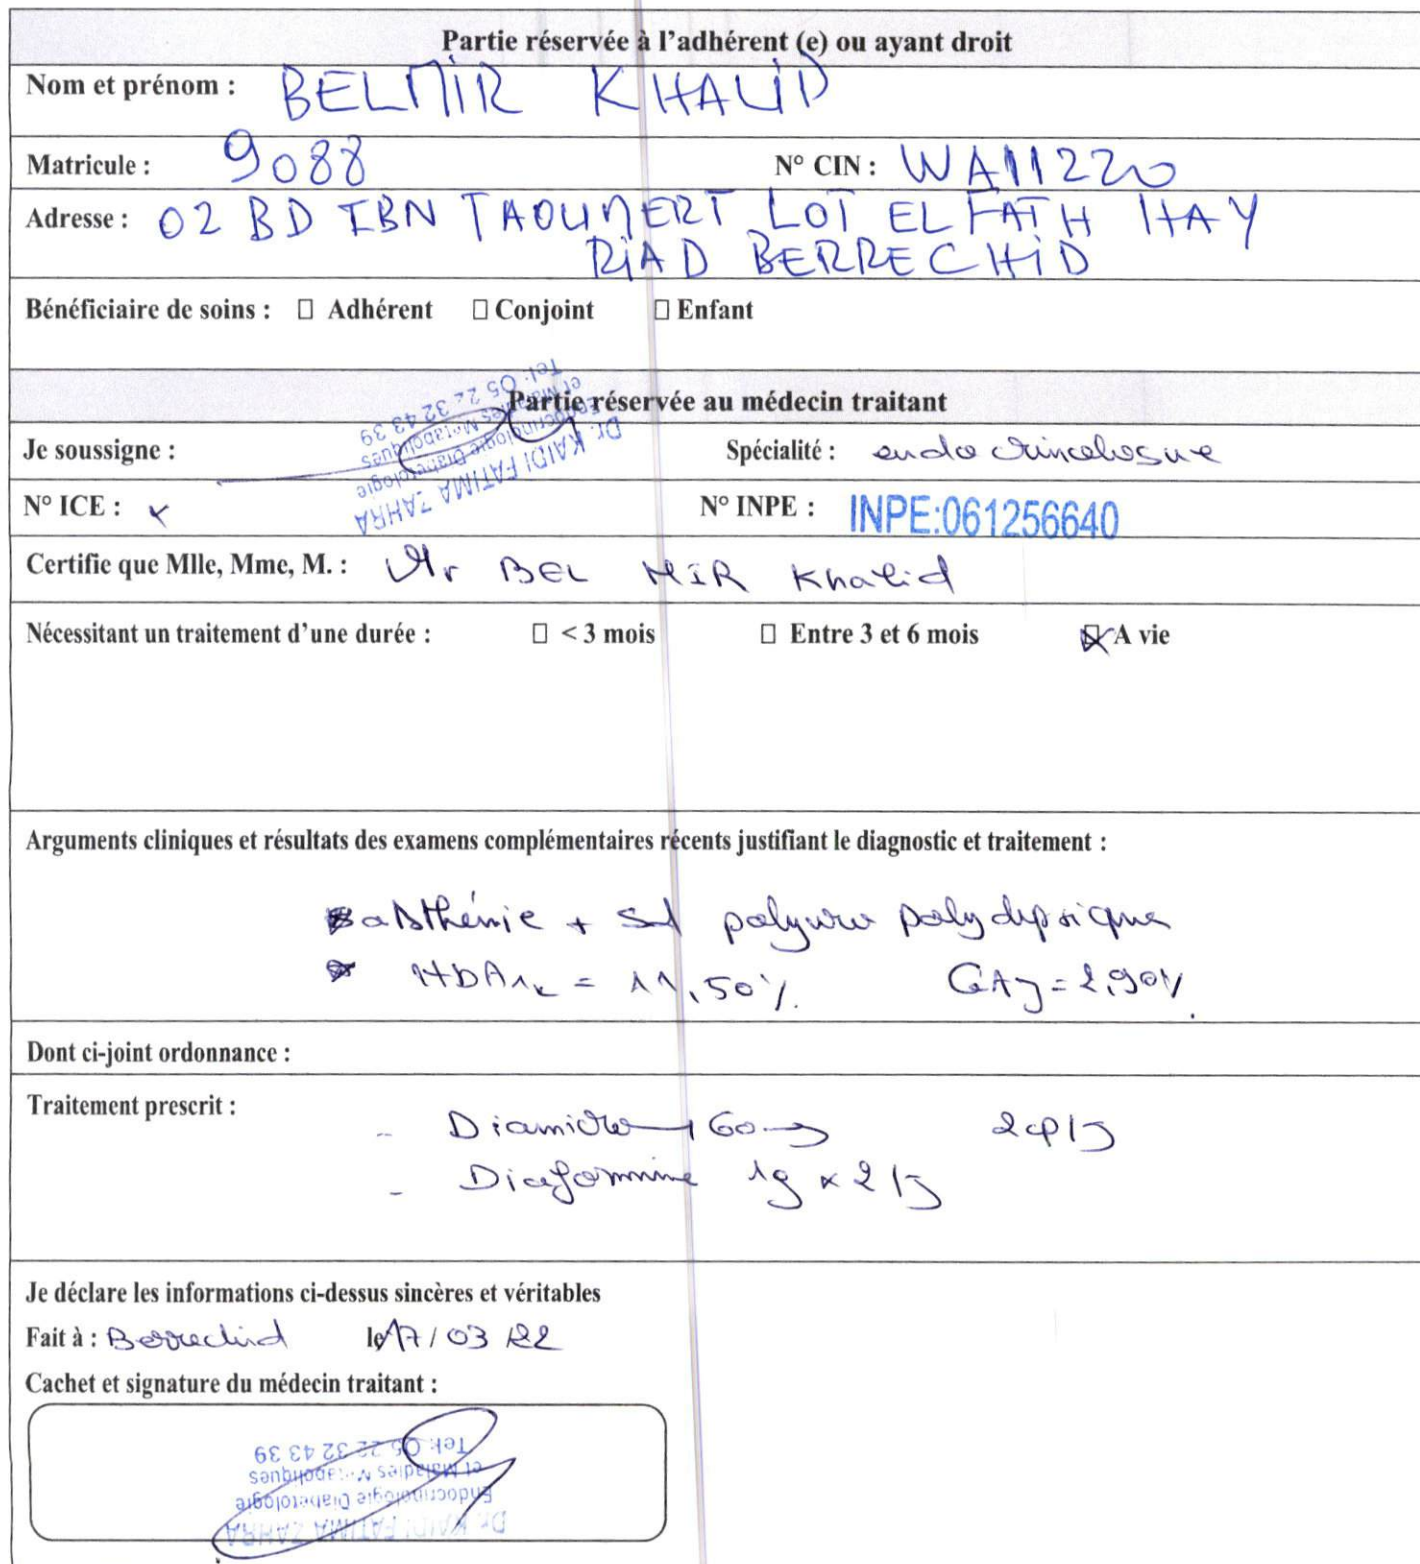 Partie réservée à l'adhérent (e) ou ayant droit
Nom et prénom : BELMIR KHALID
Matricule : 9088 N° CIN : WA11220
Adresse : 02 BD IBN TAOUMERT LOT EL FATH HAY
RIAD BERRECHID
Bénéficiaire de soins : ☐ Adhérent ☐ Conjoint ☐ Enfant
Partie réservée au médecin traitant
Dr. KAIDI FATIMA ZAHRA
Endocrinologie Diabetologie
et Maladies Metaboliques
Tel: 05 22 32 43 39
Je soussigne : Spécialité :
N° ICE : x N° INPE : INPE:061256640
Certifie que Mlle, Mme, M. : Mr BEL MIR Khalid
Nécessitant un traitement d'une durée : ☐ < 3 mois ☐ Entre 3 et 6 mois ☒ A vie
Arguments cliniques et résultats des examens complémentaires récents justifiant le diagnostic et traitement :
asthénie + Sd polyuro polydipsique
HbA1c = 11,50% GAJ = 2,90
Dont ci-joint ordonnance :
Traitement prescrit :
- Diamicron 60mg 2cp/j
- Diaformine 1g x 2/j
Je déclare les informations ci-dessus sincères et véritables
Fait à : Berrechid le 17/03/22
Cachet et signature du médecin traitant :
Dr. KAIDI FATIMA ZAHRA
Endocrinologie Diabetologie
et Maladies Metaboliques
Tel: 05 22 32 43 39